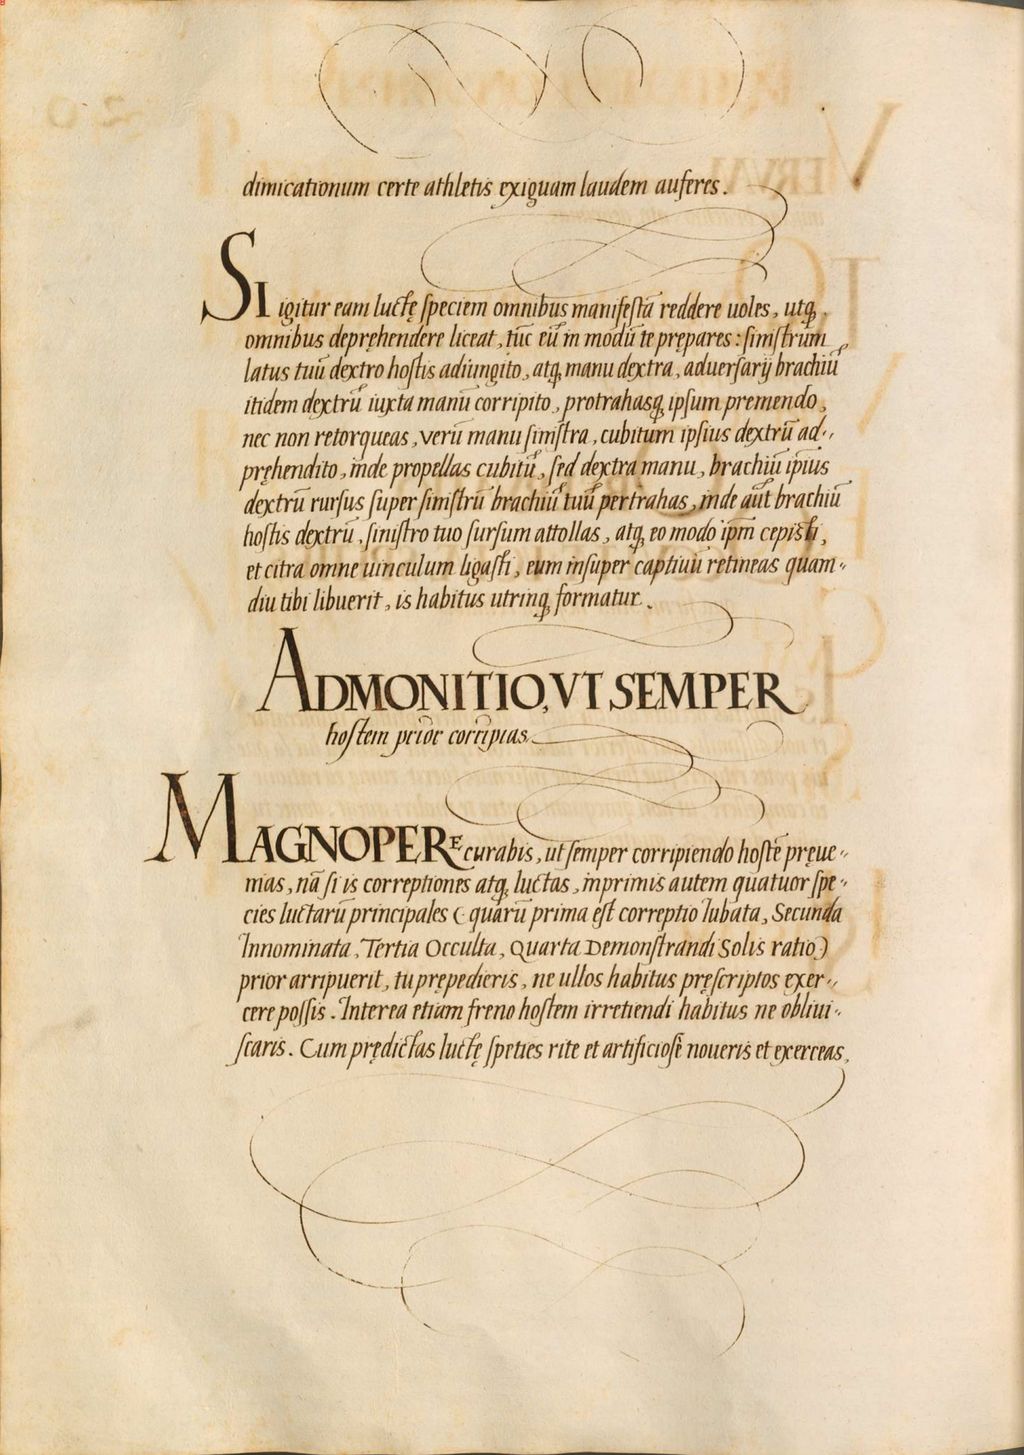 dimicationum certe athletis exiguam laudem auferes.
SI igitur eam luctę speciem omnibus manifestā reddere uoles, utq̃
omnibus depręhendere liceat, tūc eū in modū te prepares: sinistrum
latus tuū dextro hostis adiungito, atq̃ manu dextra, aduersarij brachiū
itidem dextrū iuxta manū corripito, protrahasq̃ ipsum premendo,
nec non retorqueas, verū manu sinistra, cubitum ipsius dextrū ad-
pręhendito, inde propellas cubitū, sed dextra manu, brachiū ip̄ius
dextrū rursus super sinistrū brachiū tuū pertrahas, inde aūt brachiū
hostis dextrū, sinistro tuo sursum attollas, atq̃ eo modo ip̄m cepisti,
et citra omne uinculum ligasti, eum insuper captiuū retineas quam-
diu tibi libuerit, is habitus utrinq̃ formatur.
ADMONITIO, VT SEMPER
hostem prior corripias
MAGNOPERE curabis, ut semper corripiendo hostē pręue-
nias, nā si is correptiones atq̃ luctas, inprimis autem quatuor spe-
cies luctarū principales (quarū prima est correptio Iubata, Secunda
Innominata, Tertia Occulta, Quarta Demonstrandi Solis ratio)
prior arripuerit, tu prępedieris, ne ullos habitus pręscriptos exer-
cere possis. Interea etiam freno hostem irretiendi habitus ne obliui-
scaris. Cum prędictas luctę speties rite et artificiosē noueris et exerceas,